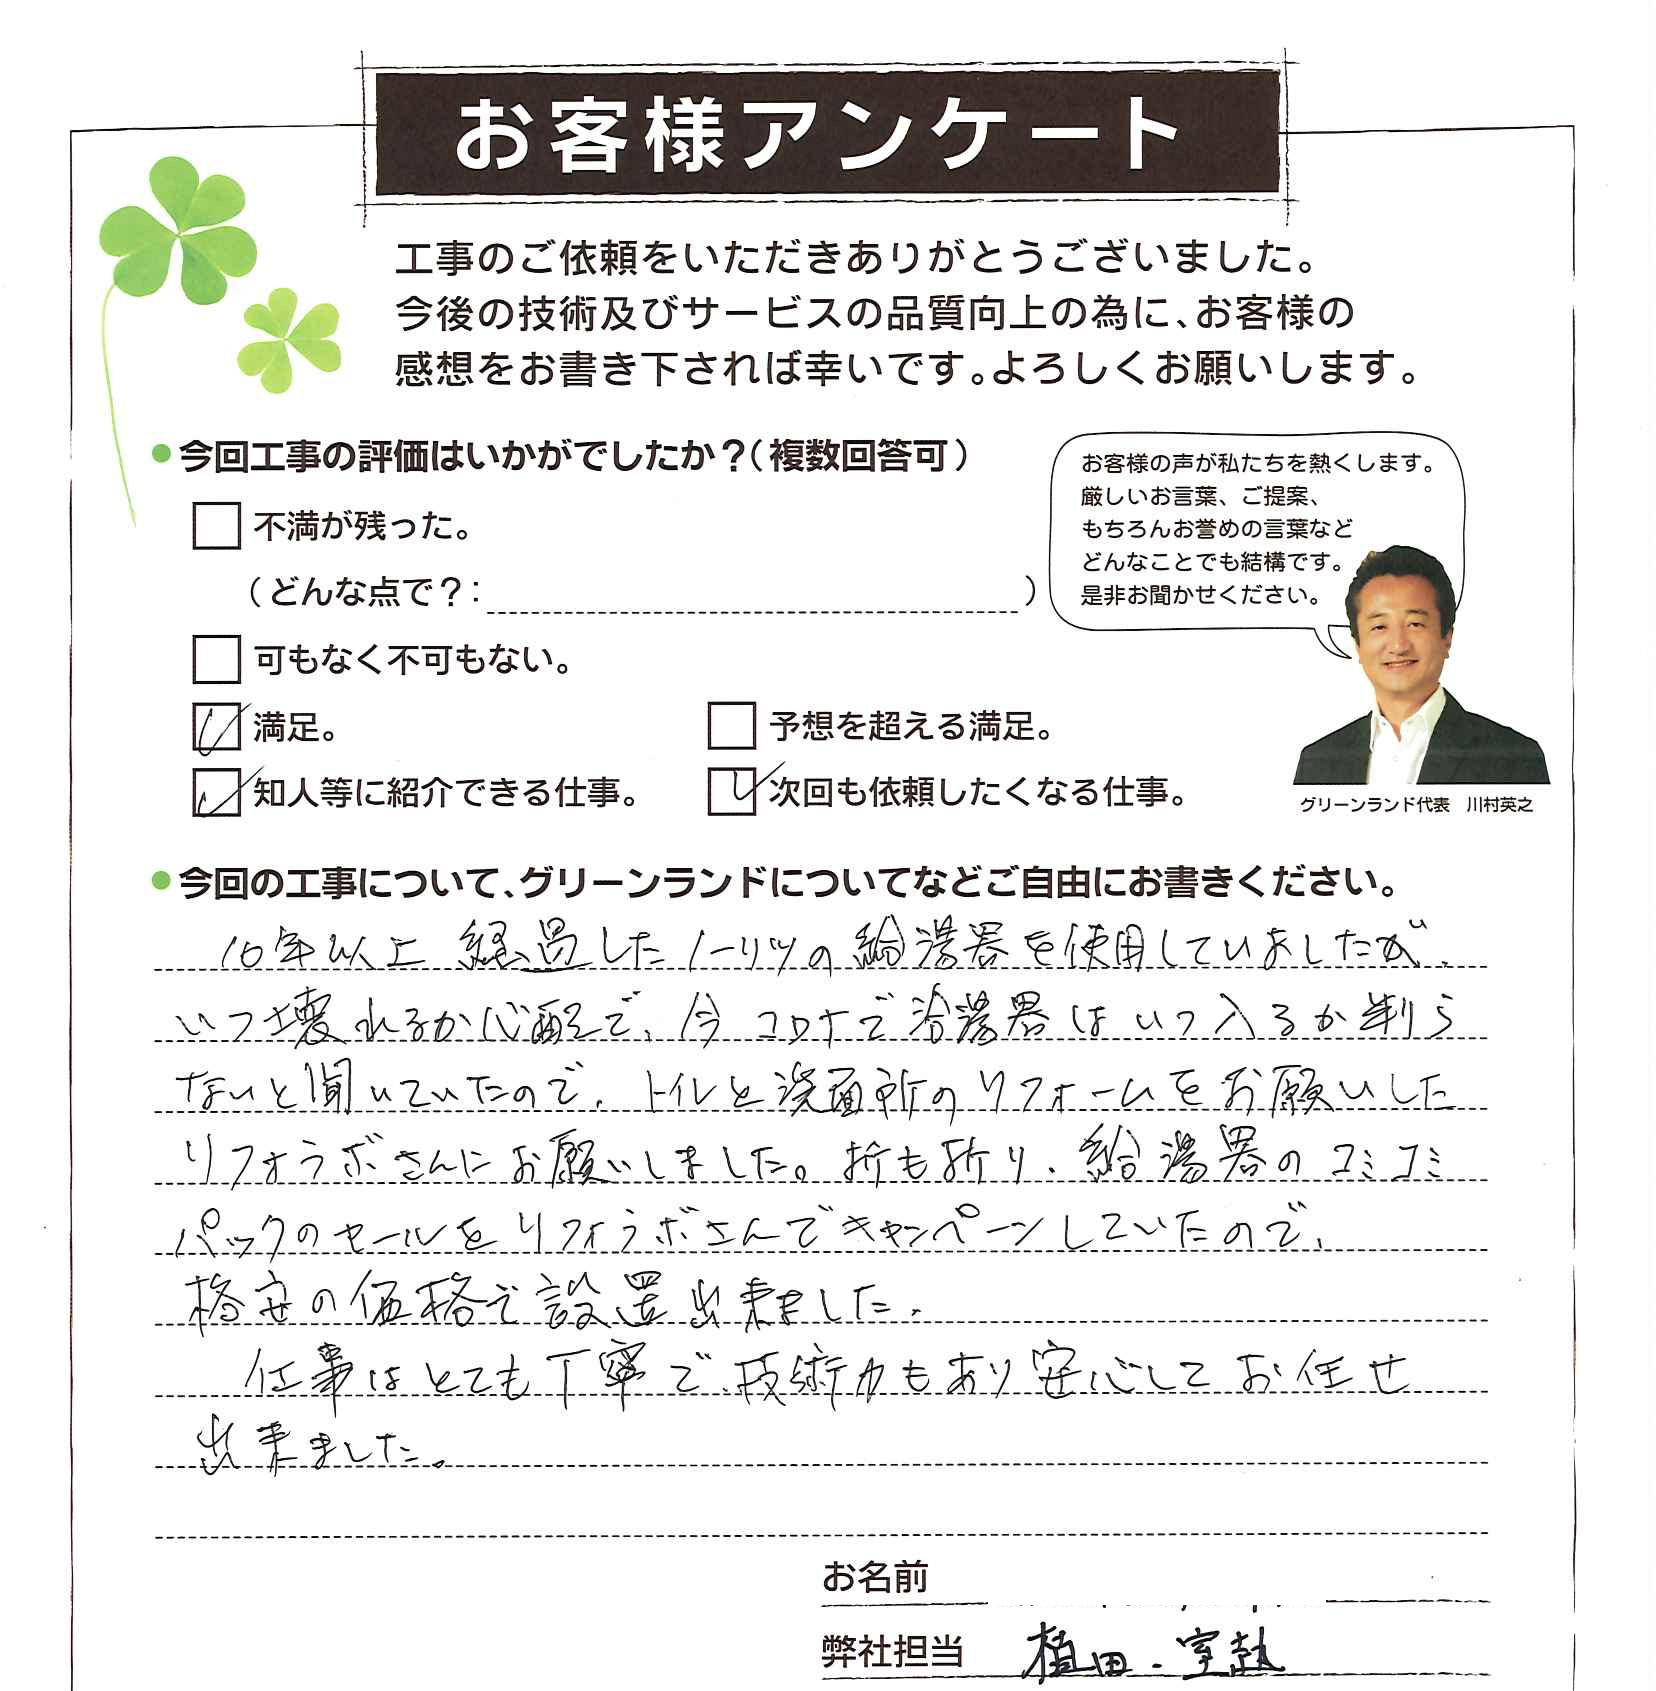 お客様アンケート
工事のご依頼をいただきありがとうございました。
今後の技術及びサービスの品質向上の為に、お客様の
感想をお書き下されば幸いです。よろしくお願いします。
●今回工事の評価はいかがでしたか?(複数回答可)
不満が残った。
(どんな点で?: )
可もなく不可もない。
満足。
予想を超える満足。
知人等に紹介できる仕事。
次回も依頼したくなる仕事。
お客様の声が私たちを熱くします。
厳しいお言葉、ご提案、
もちろんお誉めの言葉など
どんなことでも結構です。
是非お聞かせください。
グリーンランド代表 川村英之
●今回の工事について、グリーンランドについてなどご自由にお書きください。
10年以上経過したノーリツの給湯器を使用していましたが、
いつ壊れるか心配で、今コロナで給湯器はいつ入るか判ら
ないと聞いていたので、トイレと洗面所のリフォームをお願いした
リフォラボさんにお願いしました。折も折り、給湯器のコミコミ
パックのセールをリフォラボさんでキャンペーンしていたので、
格安の価格で設置出来ました。
仕事はとても丁寧で、技術力もあり安心してお任せ
出来ました。
お名前
弊社担当 植田・室